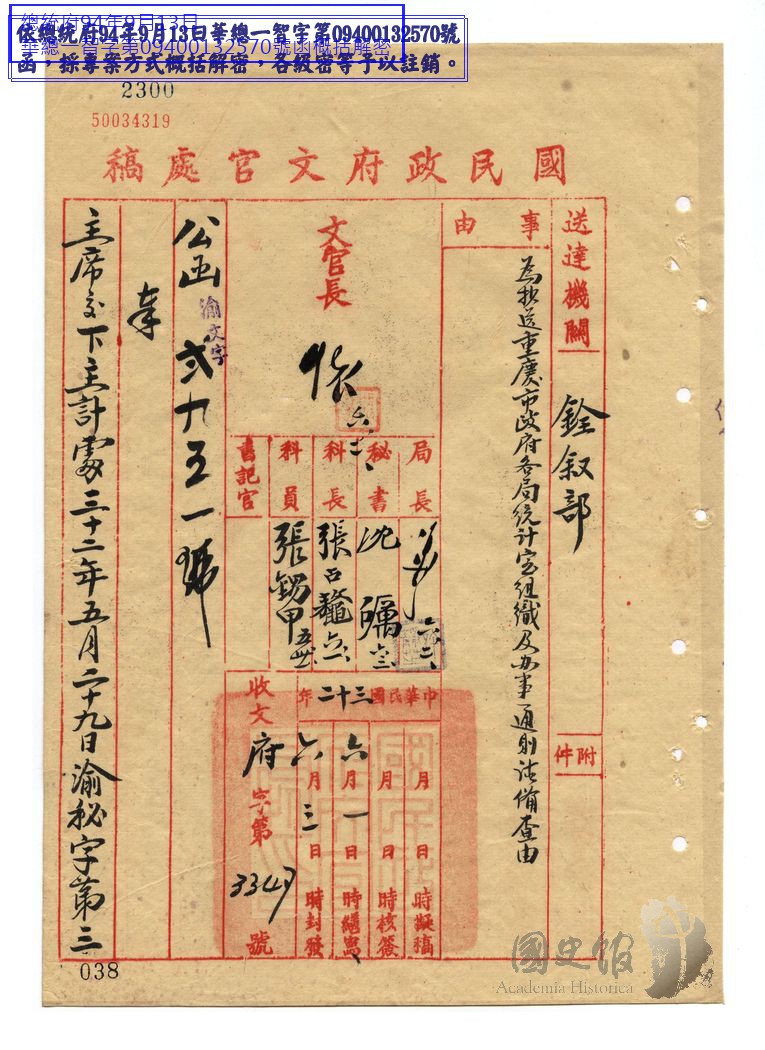 總統府94年9月13日
華總一智字第09400132570號函概括解密
依總統府94年9月13日華總一智字第09400132570號
函，採專案方式概括解密，各級密等予以註銷。
2300
50034319
國民政府文官處稿
送達機關
銓叙部
附件
事由
為抄送重慶市政府各局統計室組織及办事通則請備查由
文官長
局長
秘書
科長
科員
書記官
沈
張
張
甲
中華民國三十二年
月 日 時擬稿
月 日 時核簽
六月一日 時繕寫
六月三日 時封發
收文府字第3347號
公函渝文字弍九五一號
奉
主席交下主計處三十二年五月二十九日渝秘字第三
038
國史館
Academia Historica